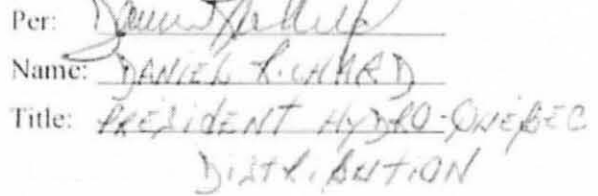 Per:
Name: DANIEL RICHARD
Title: PRÉSIDENT HYDRO-QUÉBEC
DISTRIBUTION